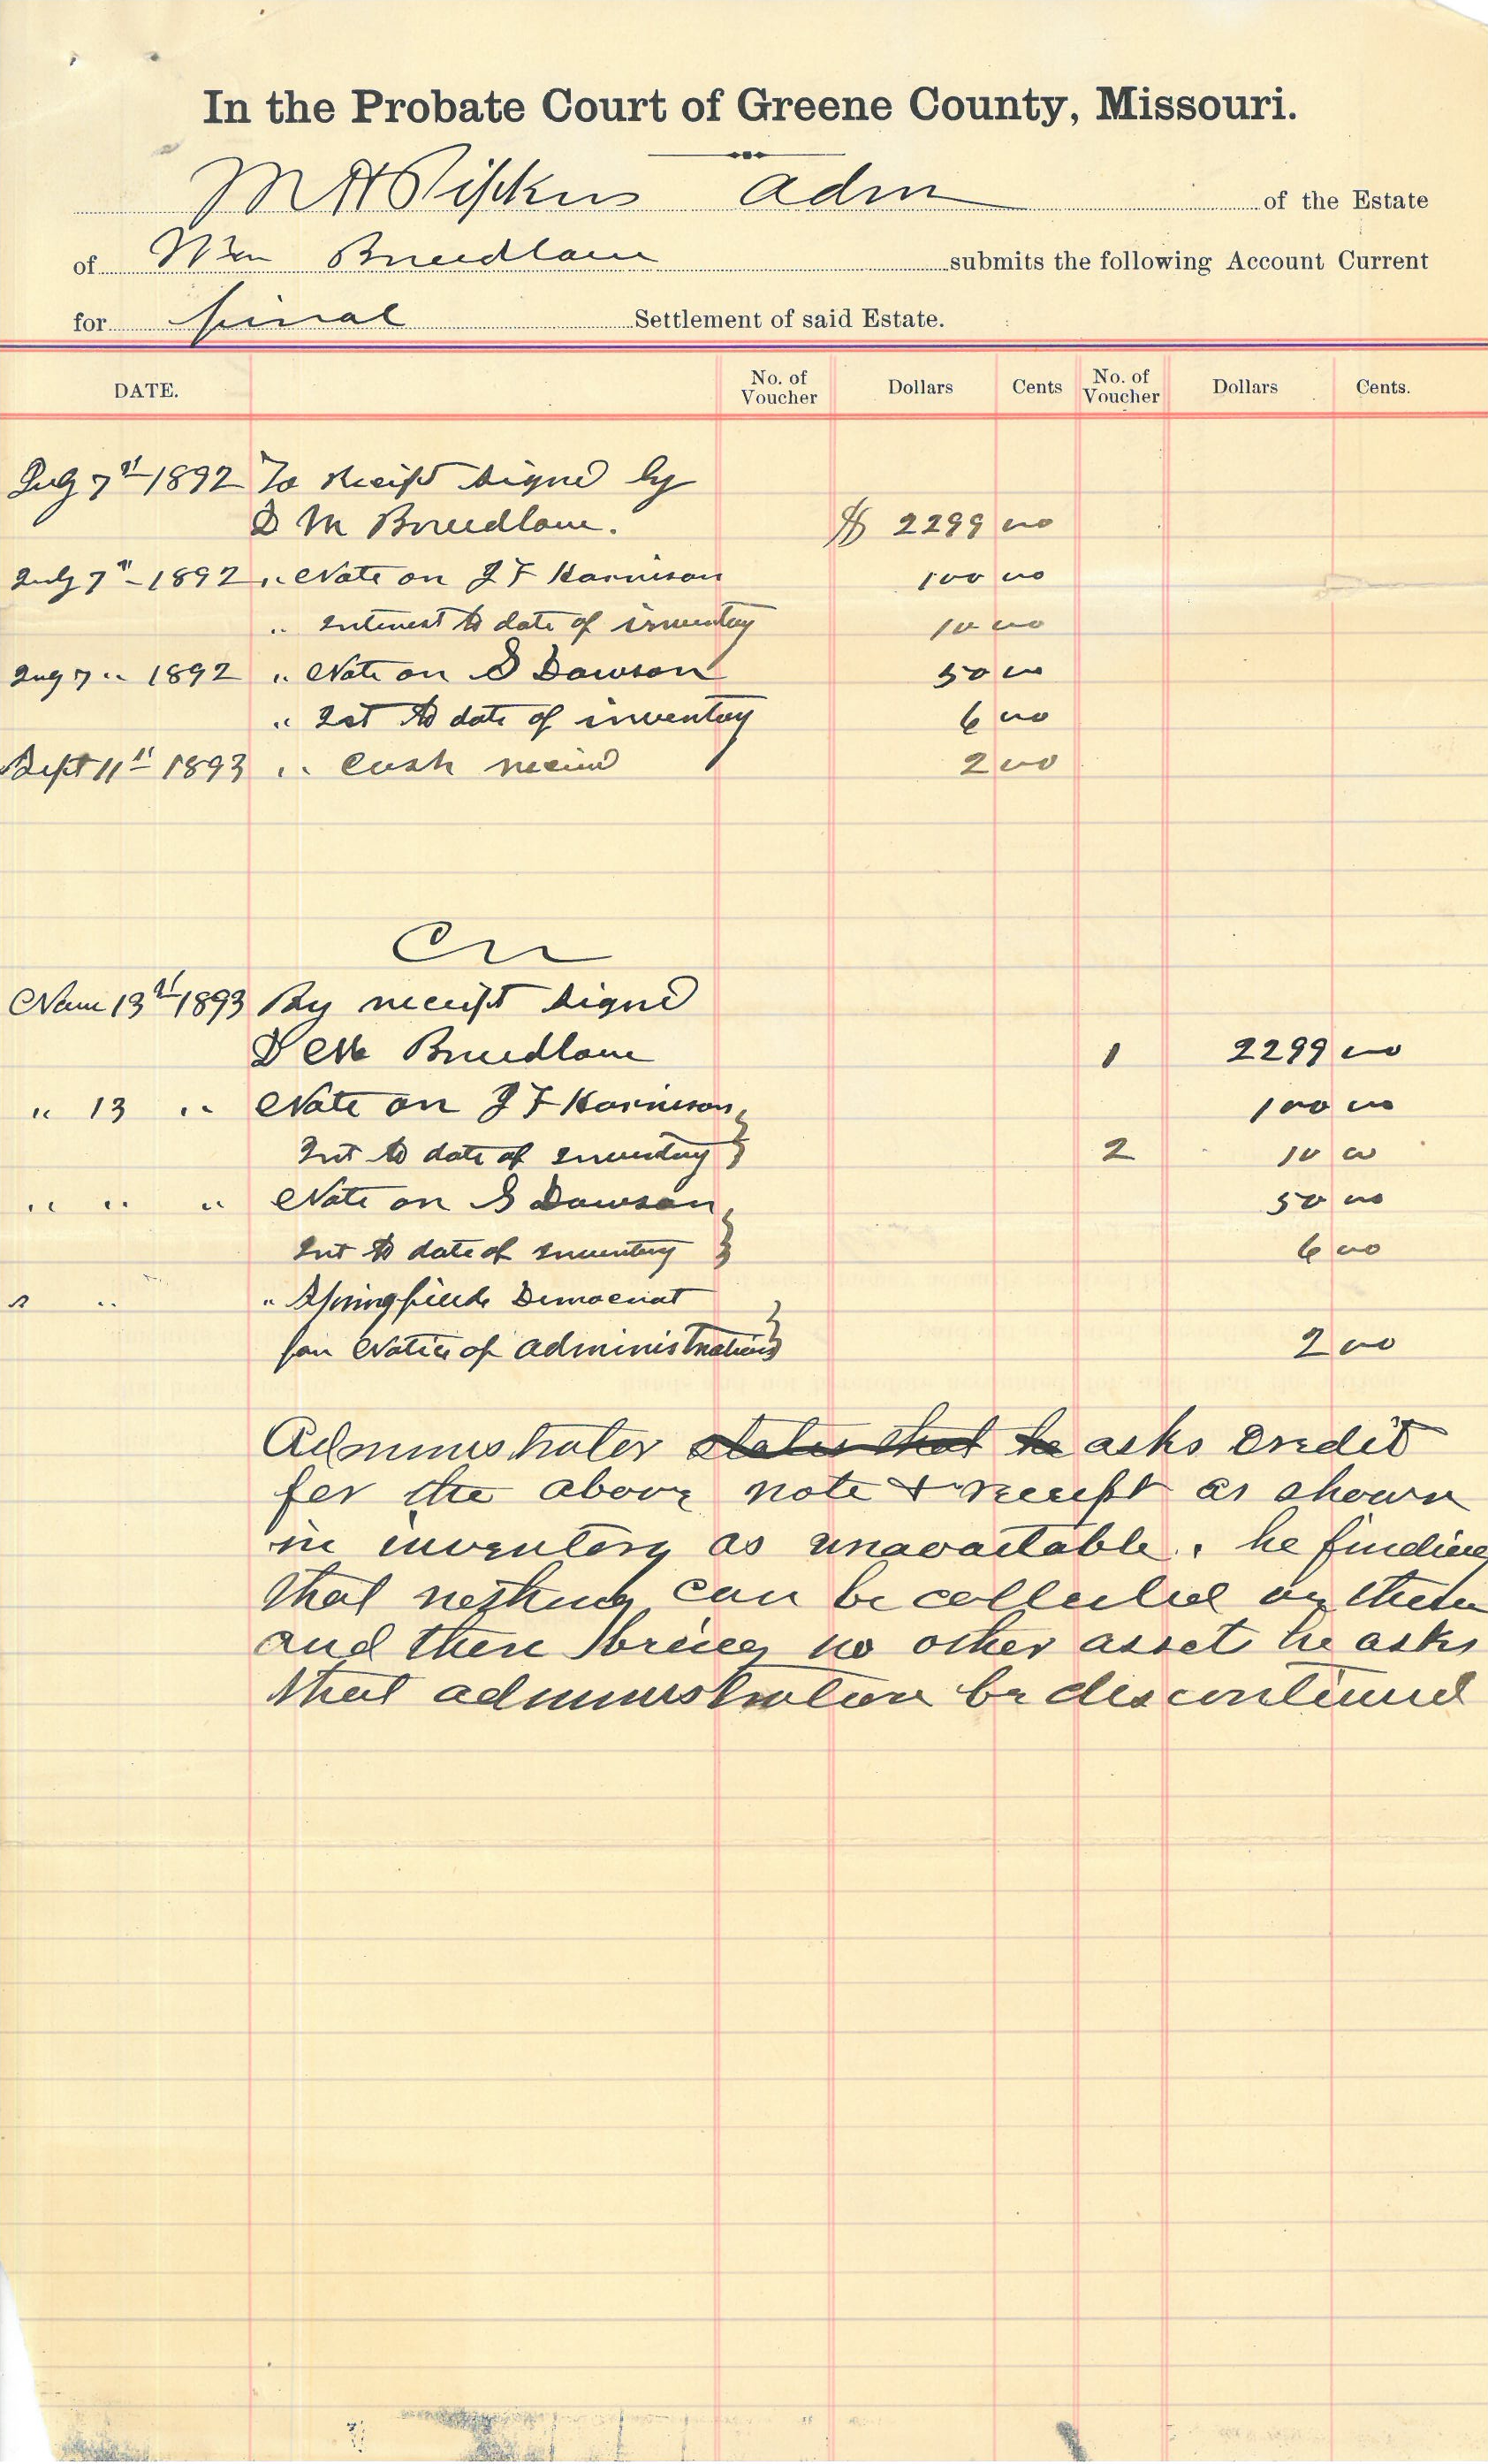 In the Probate Court of Greene County, Missouri.
M H Pipkin Adm of the Estate
of Wm Breedlove submits the following Account Current
for final Settlement of said Estate.
DATE. No. of Voucher Dollars Cents No. of Voucher Dollars Cents.
July 7" 1892 To receipt signed by
D M Breedlove. $ 2299 00
July 7" 1892 " Note on J F Harrison 100 00
" Interest to date of inventory 10 00
July 7 " 1892 " Note on S Dawson 50 00
" Int to date of inventory 6 00
Sept 11" 1893 " Cash received 2 00
Cr
13" 1893 By receipt signed
D M Breedlove 1 2299 00
" 13 " Note on J F Harrison 100 00
Int to date of inventory 2 10 00
" " " Note on S Dawson 50 00
Int to date of inventory 6 00
" " " Springfield Democrat
for Notice of Administration 2 00
Administrator states that he asks credit
for the above note & receipt as shown
in inventory as unavailable. he finding
that nothing can be collected on them
and there being no other asset he asks
that administration be discontinued